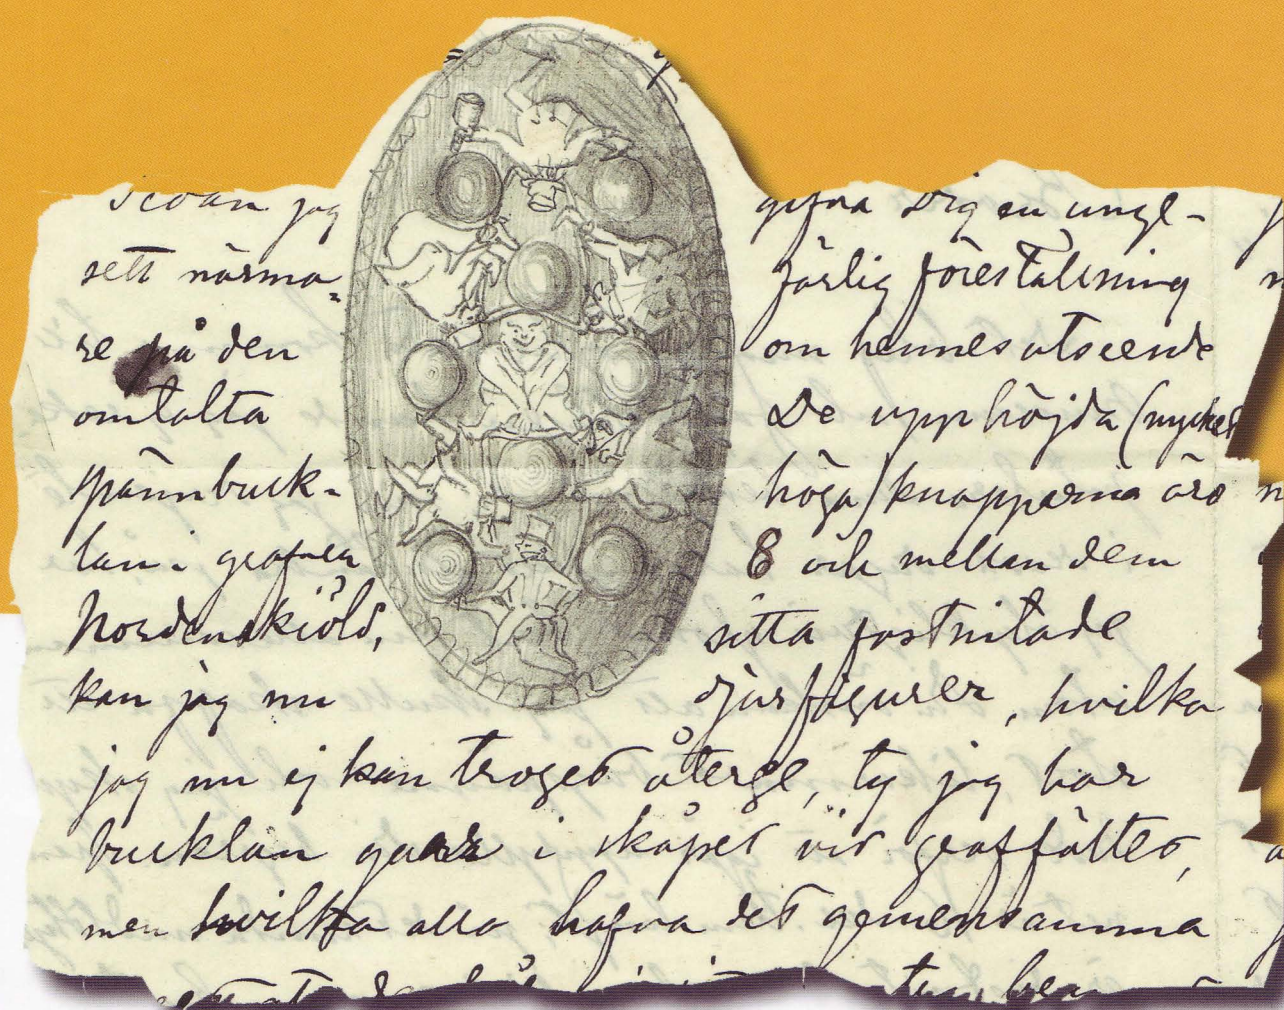 Sedan jag
sett närma-
re på den
omtalta
spännbuck-
lan i grafven
Nordenskiöld,
kan jag nu
gifva dig en unge-
färlig föreställning
om hennes utseende
De upphöjda (mycket
höga) knapparna äro
8 och mellan dem
sitta fastnitade
djurfigurer, hvilka
jag nu ej kan troget återge, ty jag har
bucklan qvar i skåpet vid graffältet,
men hvilka alla hafva det gemensamma